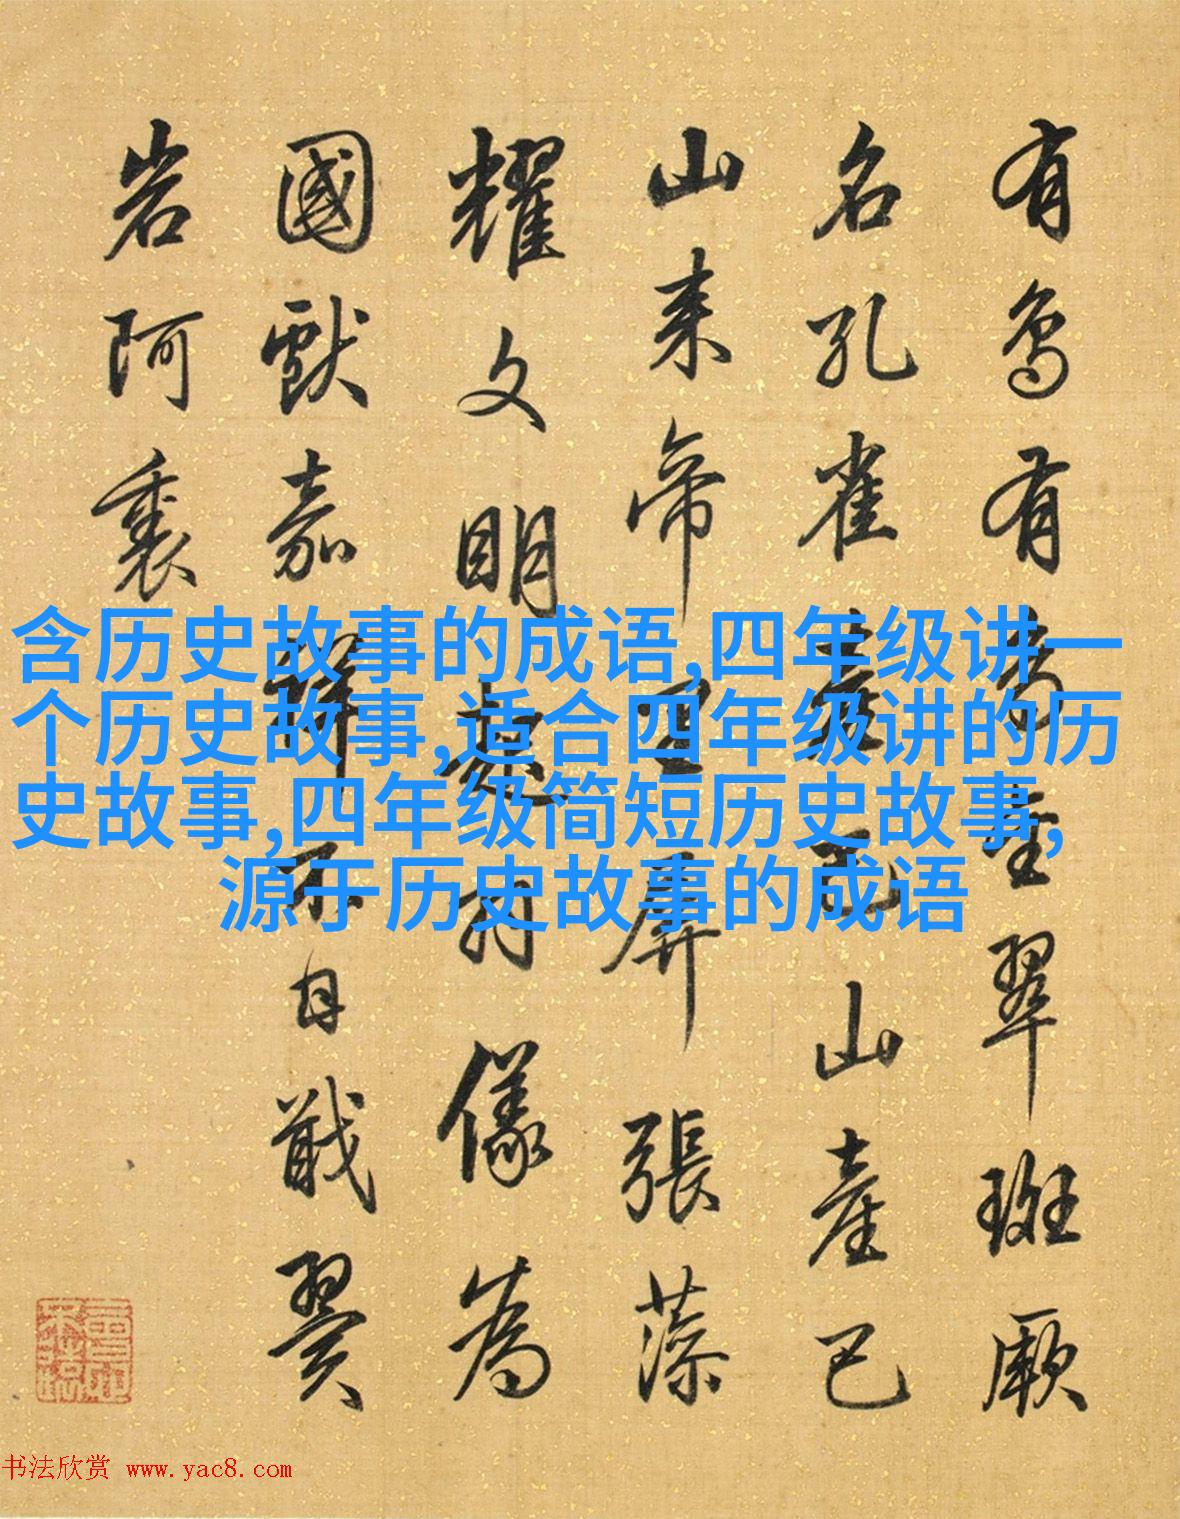 有鳥有
翠斑厥
名孔雀
山產巴
山来帝
屏張藻
耀文明
羽儀為
國獻嘉祥不日戢翼
岩阿裏
含历史故事的成语,四年级讲一
个历史故事,适合四年级讲的历
史故事,四年级简短历史故事,
源于历史故事的成语
书法欣赏 www.yac8.com